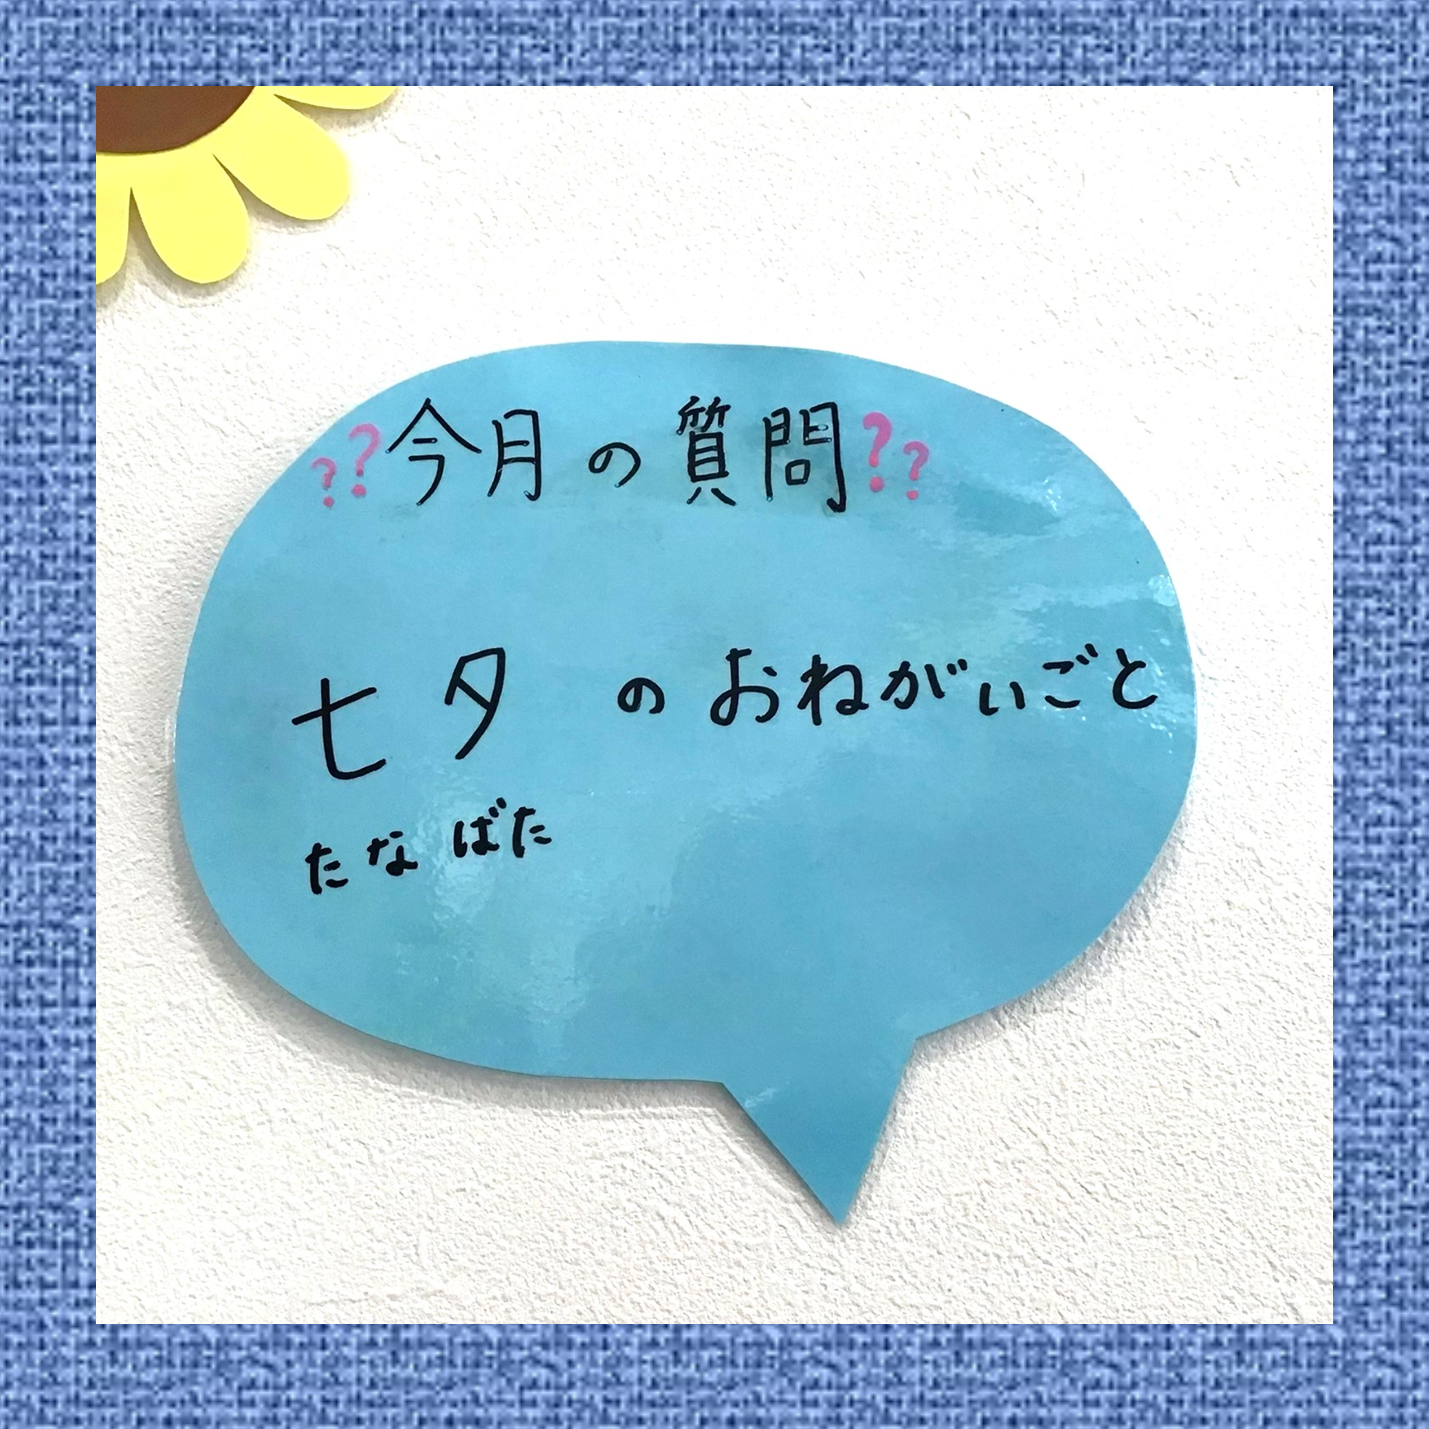 ??今月の質問??
七夕 のおねがいごと
たなばた